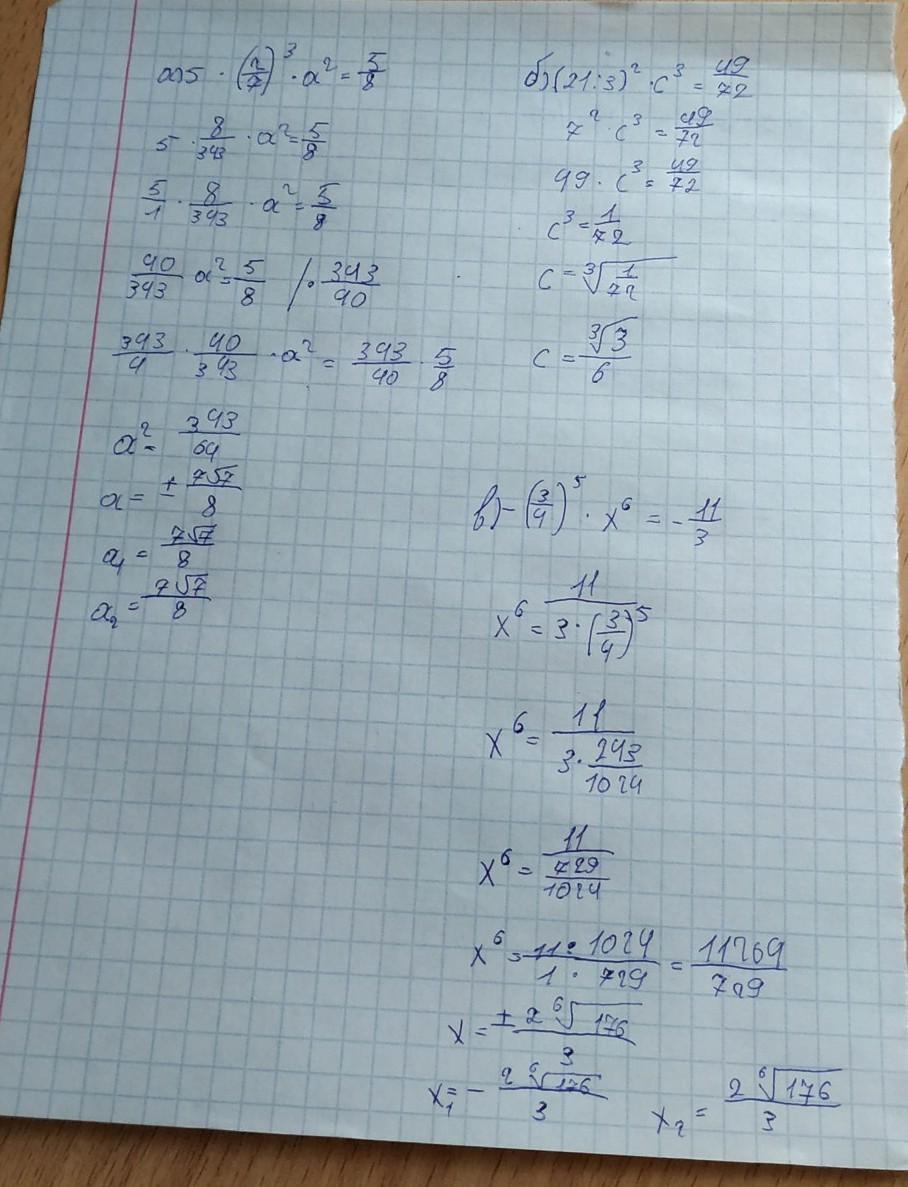 а) 5 · (2/7)³ · a² = 5/8
5 · 8/343 · a² = 5/8
5/1 · 8/343 · a² = 5/8
40/343 a² = 5/8 / · 343/40
343/4 · 40/343 · a² = 343/40 · 5/8
a² = 343/64
a = ± 7√7/8
a₁ = 7√7/8
a₂ = 7√7/8
б) (21:3)² · c³ = 49/72
7² · c³ = 49/72
49 · c³ = 49/72
c³ = 1/72
c = ∛(1/72)
c = ∛3/6
в) -(3/4)⁵ · x⁶ = - 11/3
x⁶ = 11/(3 · (3/4)⁵)
x⁶ = 11/(3 · 243/1024)
x⁶ = 11/(729/1024)
x⁶ = 11 · 1024/1 · 729 = 11264/729
x = ± 2 ⁶√176/3
x₁ = - 2 ⁶√176/3 x₂ = 2 ⁶√176/3